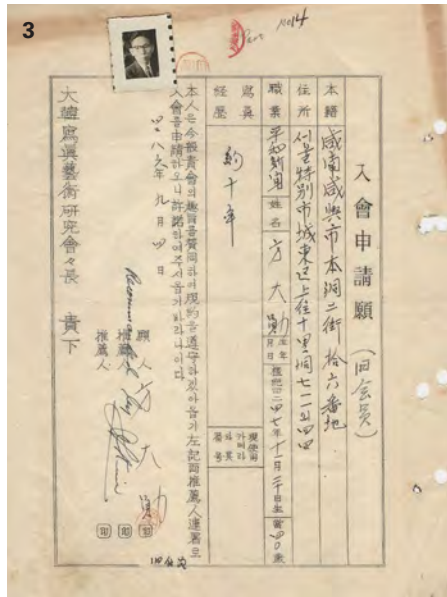 3
No 14
入會申請願 (旧会员)
本籍 咸南咸興市本洞二街拾六番地
住所 서울特別市城東區上往十里洞七一一의四四
職業 平和新聞 姓名 方大勳 生年月日 檀紀四二四七年十一月二十日生 當四〇歲
寫眞經歷 約十年
現使用카메라와其番号
本人은今般貴會의趣旨를贊同하여規約을遵守하겠아옵기左記兩推薦人連署로
入會를申請하오니許諾하여주시옵기바라나이다
四二八六年 九月 四日
願人 方大勳 印
推薦人 印
推薦人 印
Recommended by
大韓寫眞藝術硏究會々長 貴下